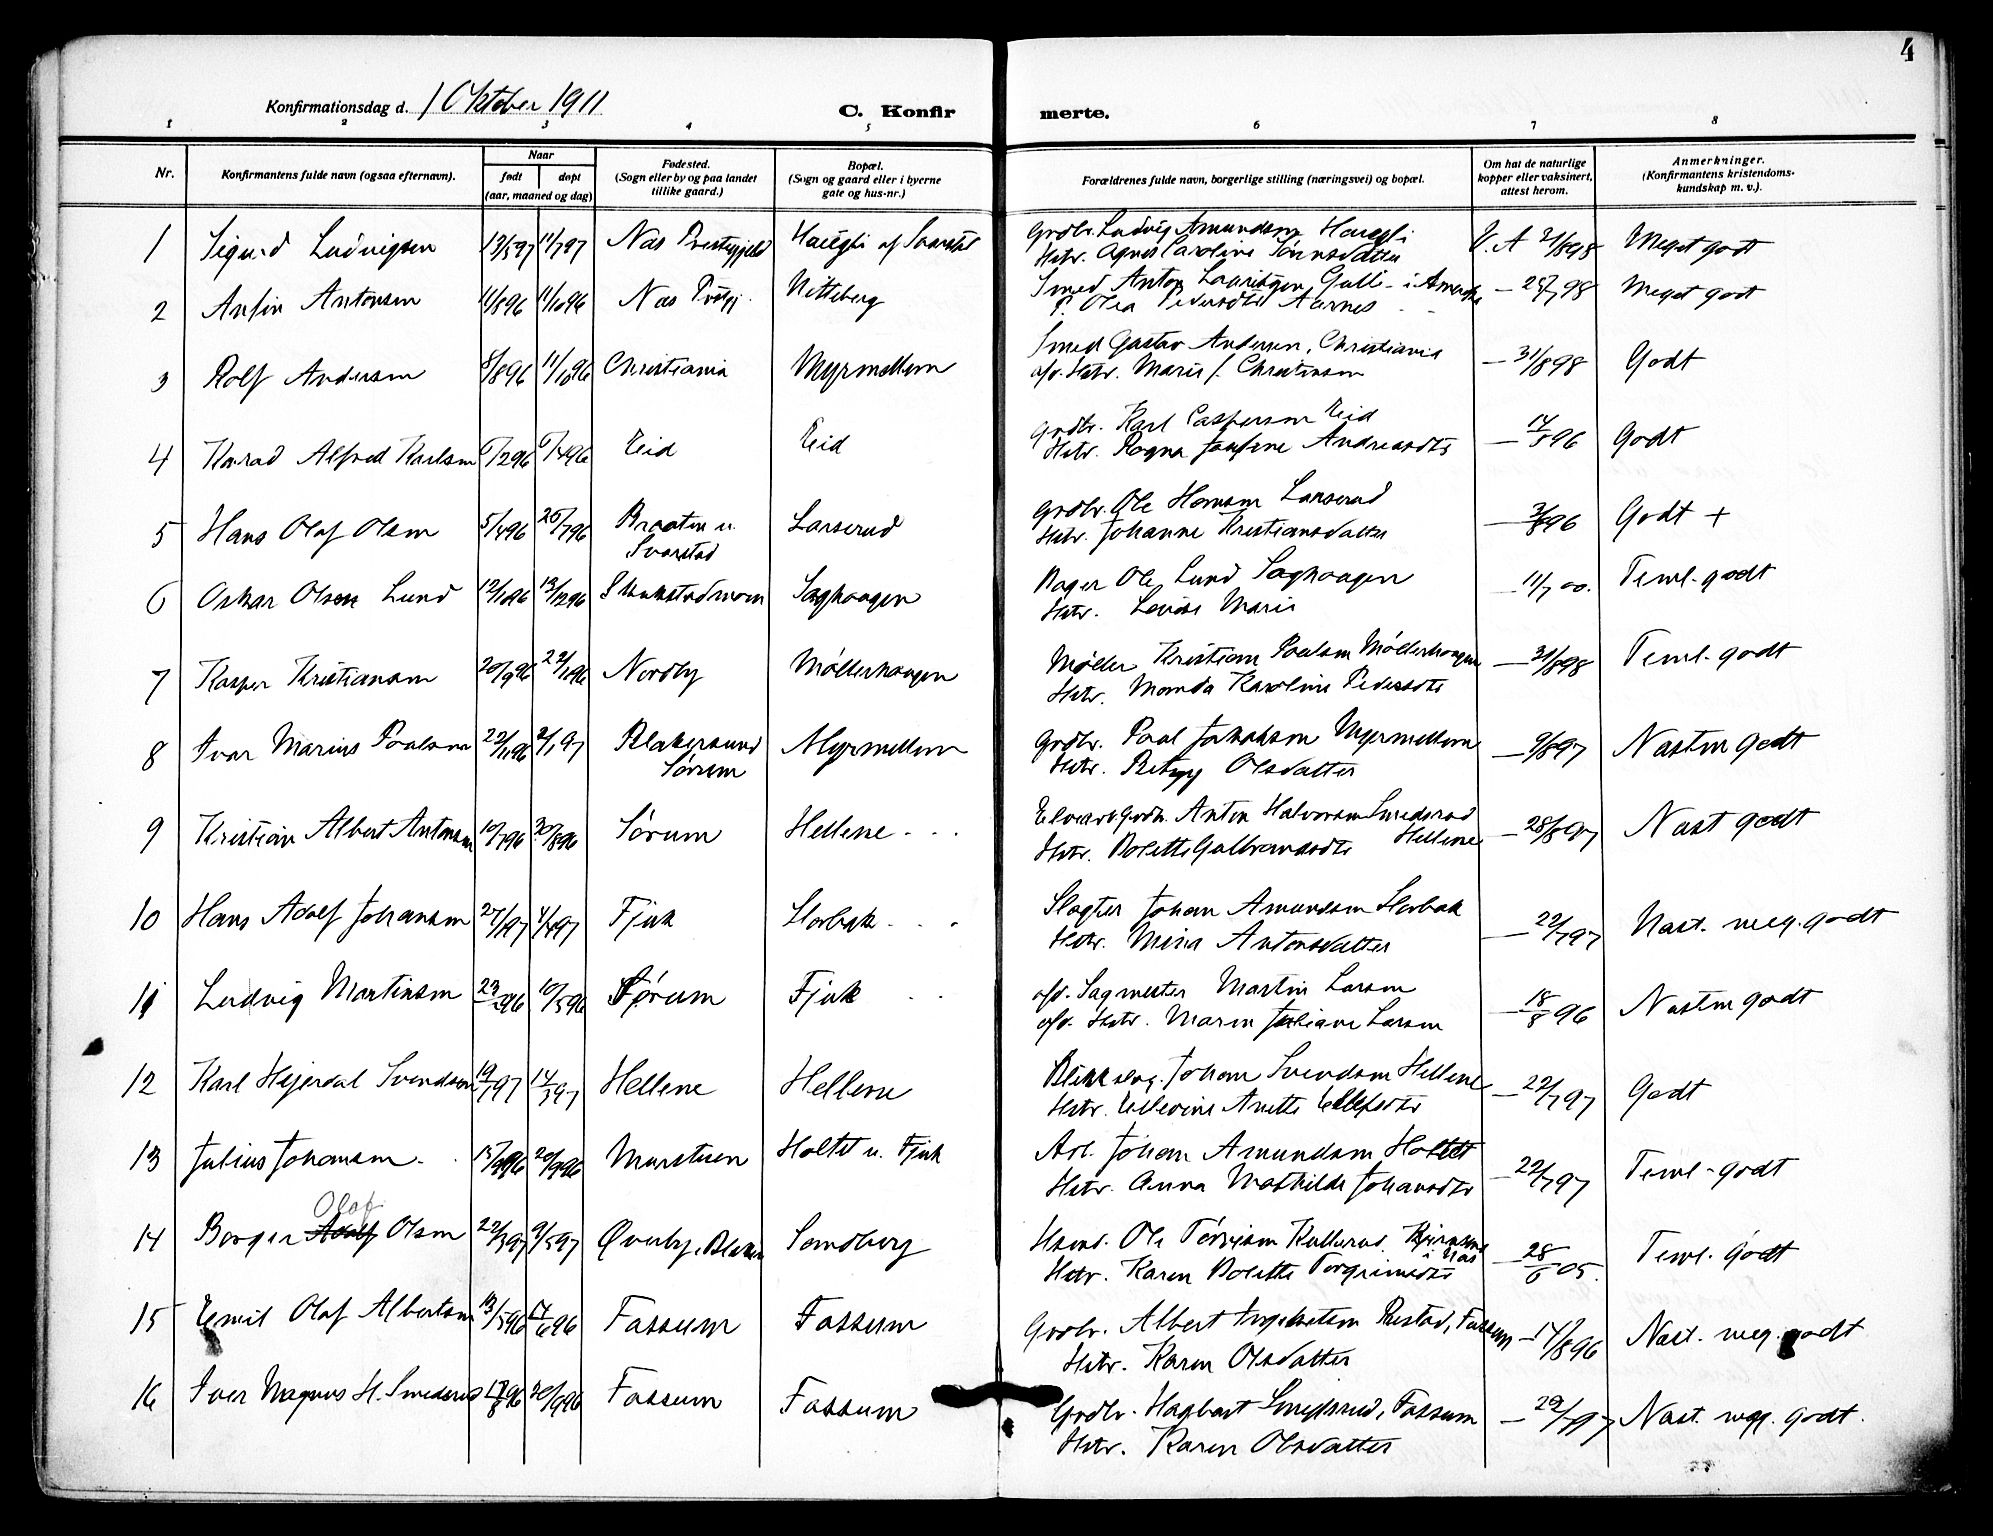 4
Konfirmationsdag d. 1 Oktober 1911
C. Konfirmerte.
1 2 3 4 5 6 7 8
Nr. Konfirmantens fulde navn (ogsaa efternavn). Naar født døpt (aar, maaned og dag) Fødested. (Sogn eller by og paa landet tillike gaard.) Bopæl. (Sogn og gaard eller i byerne gate og hus-nr.) Forældrenes fulde navn, borgerlige stilling (næringsvei) og bopæl. Om hat de naturlige kopper eller vaksinert, attest herom. Anmerkninger. (Konfirmantens kristendomskundskap m. v.).
1 Sigurd Ludvigsen 13/5 97 11/7 97 Nas Prestegjeld Haugli af Svarstad Grdbr. Ludvig Amundsen Haugli V. A 21/8 98 Meget godt
Hstr. Agnes Caroline Sørensdatter
2 Antin Antonsen 11/8 96 11/10 96 Nas Prstgj. Nitteberg Smed Anton Lauritzen Gulli - i Amerika - 28/7 98 Meget godt
P. Olea Pedersdtr Aarnes
3 Rolf Andersen 8/8 96 11/10 96 Christiania Myrmellem Smed Gustav Andersen, Christiania - 31/8 98 Godt
afd. Hstr. Marie f. Christensen
4 Konrad Alfred Karlsen 6/2 96 6/4 96 Eid Eid Grdbr. Karl Caspersen Eid - 14/5 96 Godt
Hstr. Ragna Josefine Andreasdtr
5 Hans Olaf Olsen 5/4 96 26/7 96 Braaten u. Svarstad Larserud Grdbr. Ole Hansen Larserud - 3/8 96 Godt +
Hstr. Johanne Kristiansdatter
6 Oskar Olsen Lund 12/1 96 13/12 96 Skukstadmoen Saghaagen Bager Ole Lund Saghaagen - 11/7 00. Teml. godt
Hstr. Lovise Marie
7 Kasper Kristiansen 20/9 96 22/1 96 Nordby Møllerhaagen Møller Kristian Paulsen Møllerhaagen - 31/8 98 Teml. godt
Hstr. Manda Karoline Pedersdtr
8 Ivar Marius Paalsen 22/11 96 2/1 97 Blakersund Sørum Myrmellem Grdbr. Paal Jakobsen Myrmellem - 9/8 97 Næsten godt
Hstr. Betzy Olsdatter
9 Kristian Albert Antonsen 10/7 96 30/8 96 Sørum Hellene Anton Halvorsen Smedsrud Hellene - 28/8 97 Næst godt
Hstr. Bolette Gulbrandsdtr
10 Hans Adolf Johansen 27/1 97 4/4 97 Fjuk Horbak Slagter Johan Amundsen Horbak - 22/7 97 Næst. meg. godt
Hstr. Mina Antonsdatter
11 Ludvig Martinsen 23/2 96 10/5 96 Sørum Fjuk afd. Sagmester Martin Larsen - 18/8 96 Næsten godt
afd. Hstr. Maren Juliane Larsen
12 Karl Hejerdal Svendsen 19/1 97 14/3 97 Hellene Hellene Blikkslag. Johan Svendsen Hellene - 22/7 97 Godt
Hstr. Ellevine Anette Ellefsdtr
13 Julius Johansen 15/8 96 20/9 96 Murstuen Holtet u. Fjuk Arb. Johan Amundsen Holtet - 22/7 97 Teml. godt
Hstr. Anna Mathilde Johansdtr
14 Borger Adolf Olaf Olsen 22/3 97 9/5 97 Øverby, Blaker Sandberg Ole Torgersen Kullerud i Nas - 28/6 05. Teml. godt
Hstr. Karen Bolette Torgrimsdtr
15 Emil Olaf Albertsen 13/5 96 14/6 96 Fossum Fossum Grdbr. Albert Ingebretsen Rustad, Fossum - 14/8 96 Næst. meg. godt
Hstr. Karen Olsdatter
16 Iver Magnus H. Smedsrud 17/8 96 20/9 96 Fossum Fossum Grdbr. Hagbart Smedsrud, Fossum - 29/7 97 Næst. meg. godt.
Hstr. Karen Olsdatter